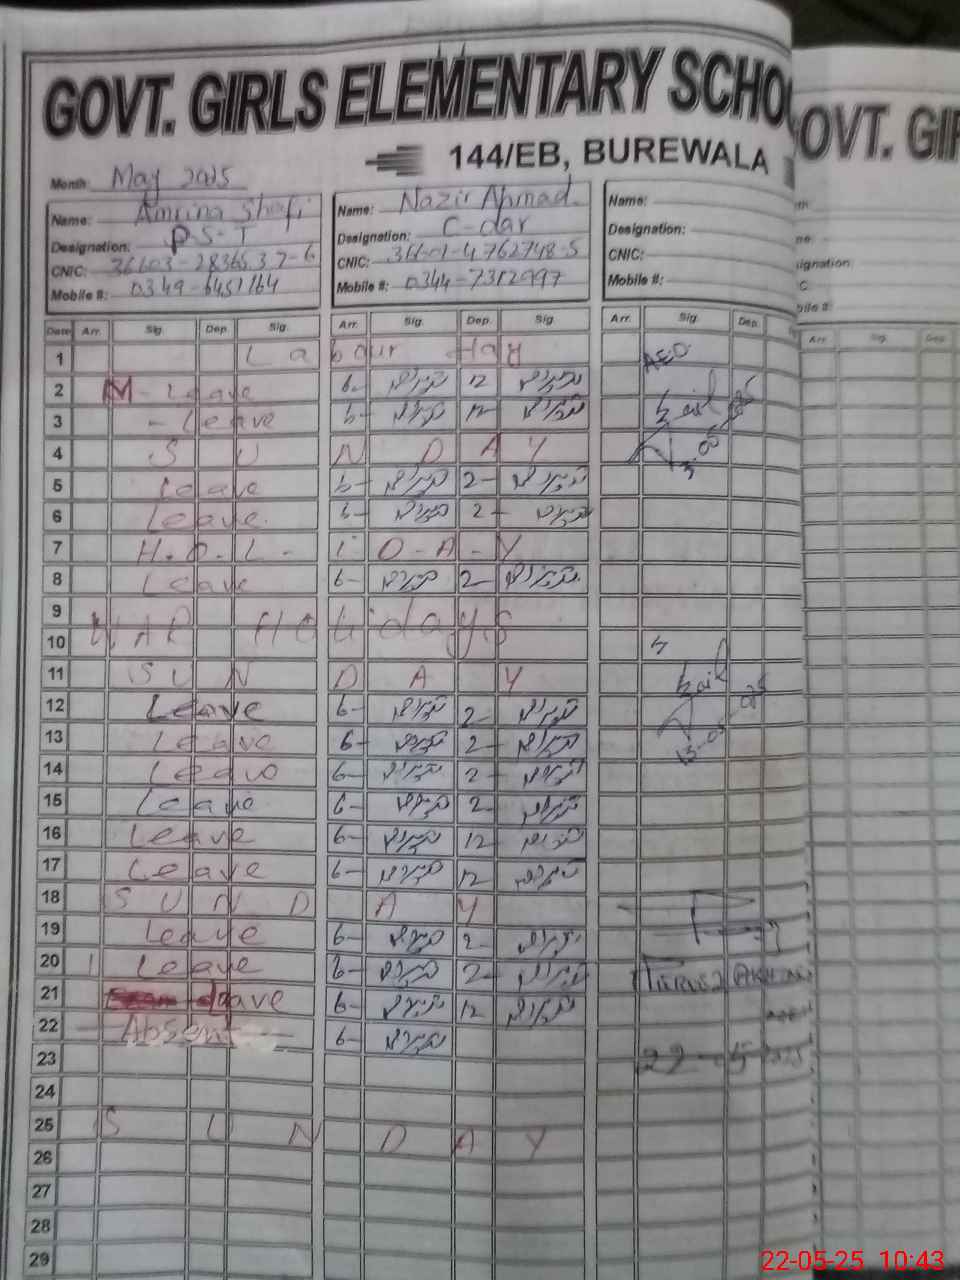 GOVT. GIRLS ELEMENTARY SCHO
144/EB, BUREWALA
OVT. GIR
Month: May 2025
Name: Amrina Shafi
Designation: P-S-T
CNIC: 36603-2836537-6
Mobile #: 0349-6451164
Name: Nazir Ahmad
Designation: C-dar
CNIC: 36601-4762748-5
Mobile #: 0344-7312997
Name:
Designation:
CNIC:
Mobile #:
Date Arr. Sig. Dep. Sig. Arr. Sig. Dep. Sig. Arr. Sig. Dep.
Arr. Sig. Dep.
1 Labour day AEO
2 M-Leave 6- نذیر احمد 12 نذیر احمد
3 - Leave 6- نذیر احمد 12- نذیر احمد
4 S U N D A Y
5 Leave 6- نذیر احمد 2- نذیر احمد
6 Leave. 6- نذیر احمد 2- نذیر احمد
7 H.O.L-I D-A-Y
8 Leave 6- نذیر احمد 2- نذیر احمد
9
10 WAR Holidays
11 S U N D A Y
12 Leave 6- نذیر احمد 2- نذیر احمد
13 Leave 6- نذیر احمد 2- نذیر احمد
13-05-025
14 Leave 6- نذیر احمد 2- نذیر احمد
15 Leave 6- نذیر احمد 2- نذیر احمد
16 Leave 6- نذیر احمد 12- نذیر احمد
17 Leave 6- نذیر احمد 12 نذیر احمد
18 S U N D A Y
19 Leave 6- نذیر احمد 2- نذیر احمد
20 Leave 6- نذیر احمد 2- نذیر احمد
21 Leave 6- نذیر احمد 12 نذیر احمد
22 Absent 6- نذیر احمد
22-05-2025
23
24
25 S U N D A Y
26
27
28
29
22-05-25 10:43